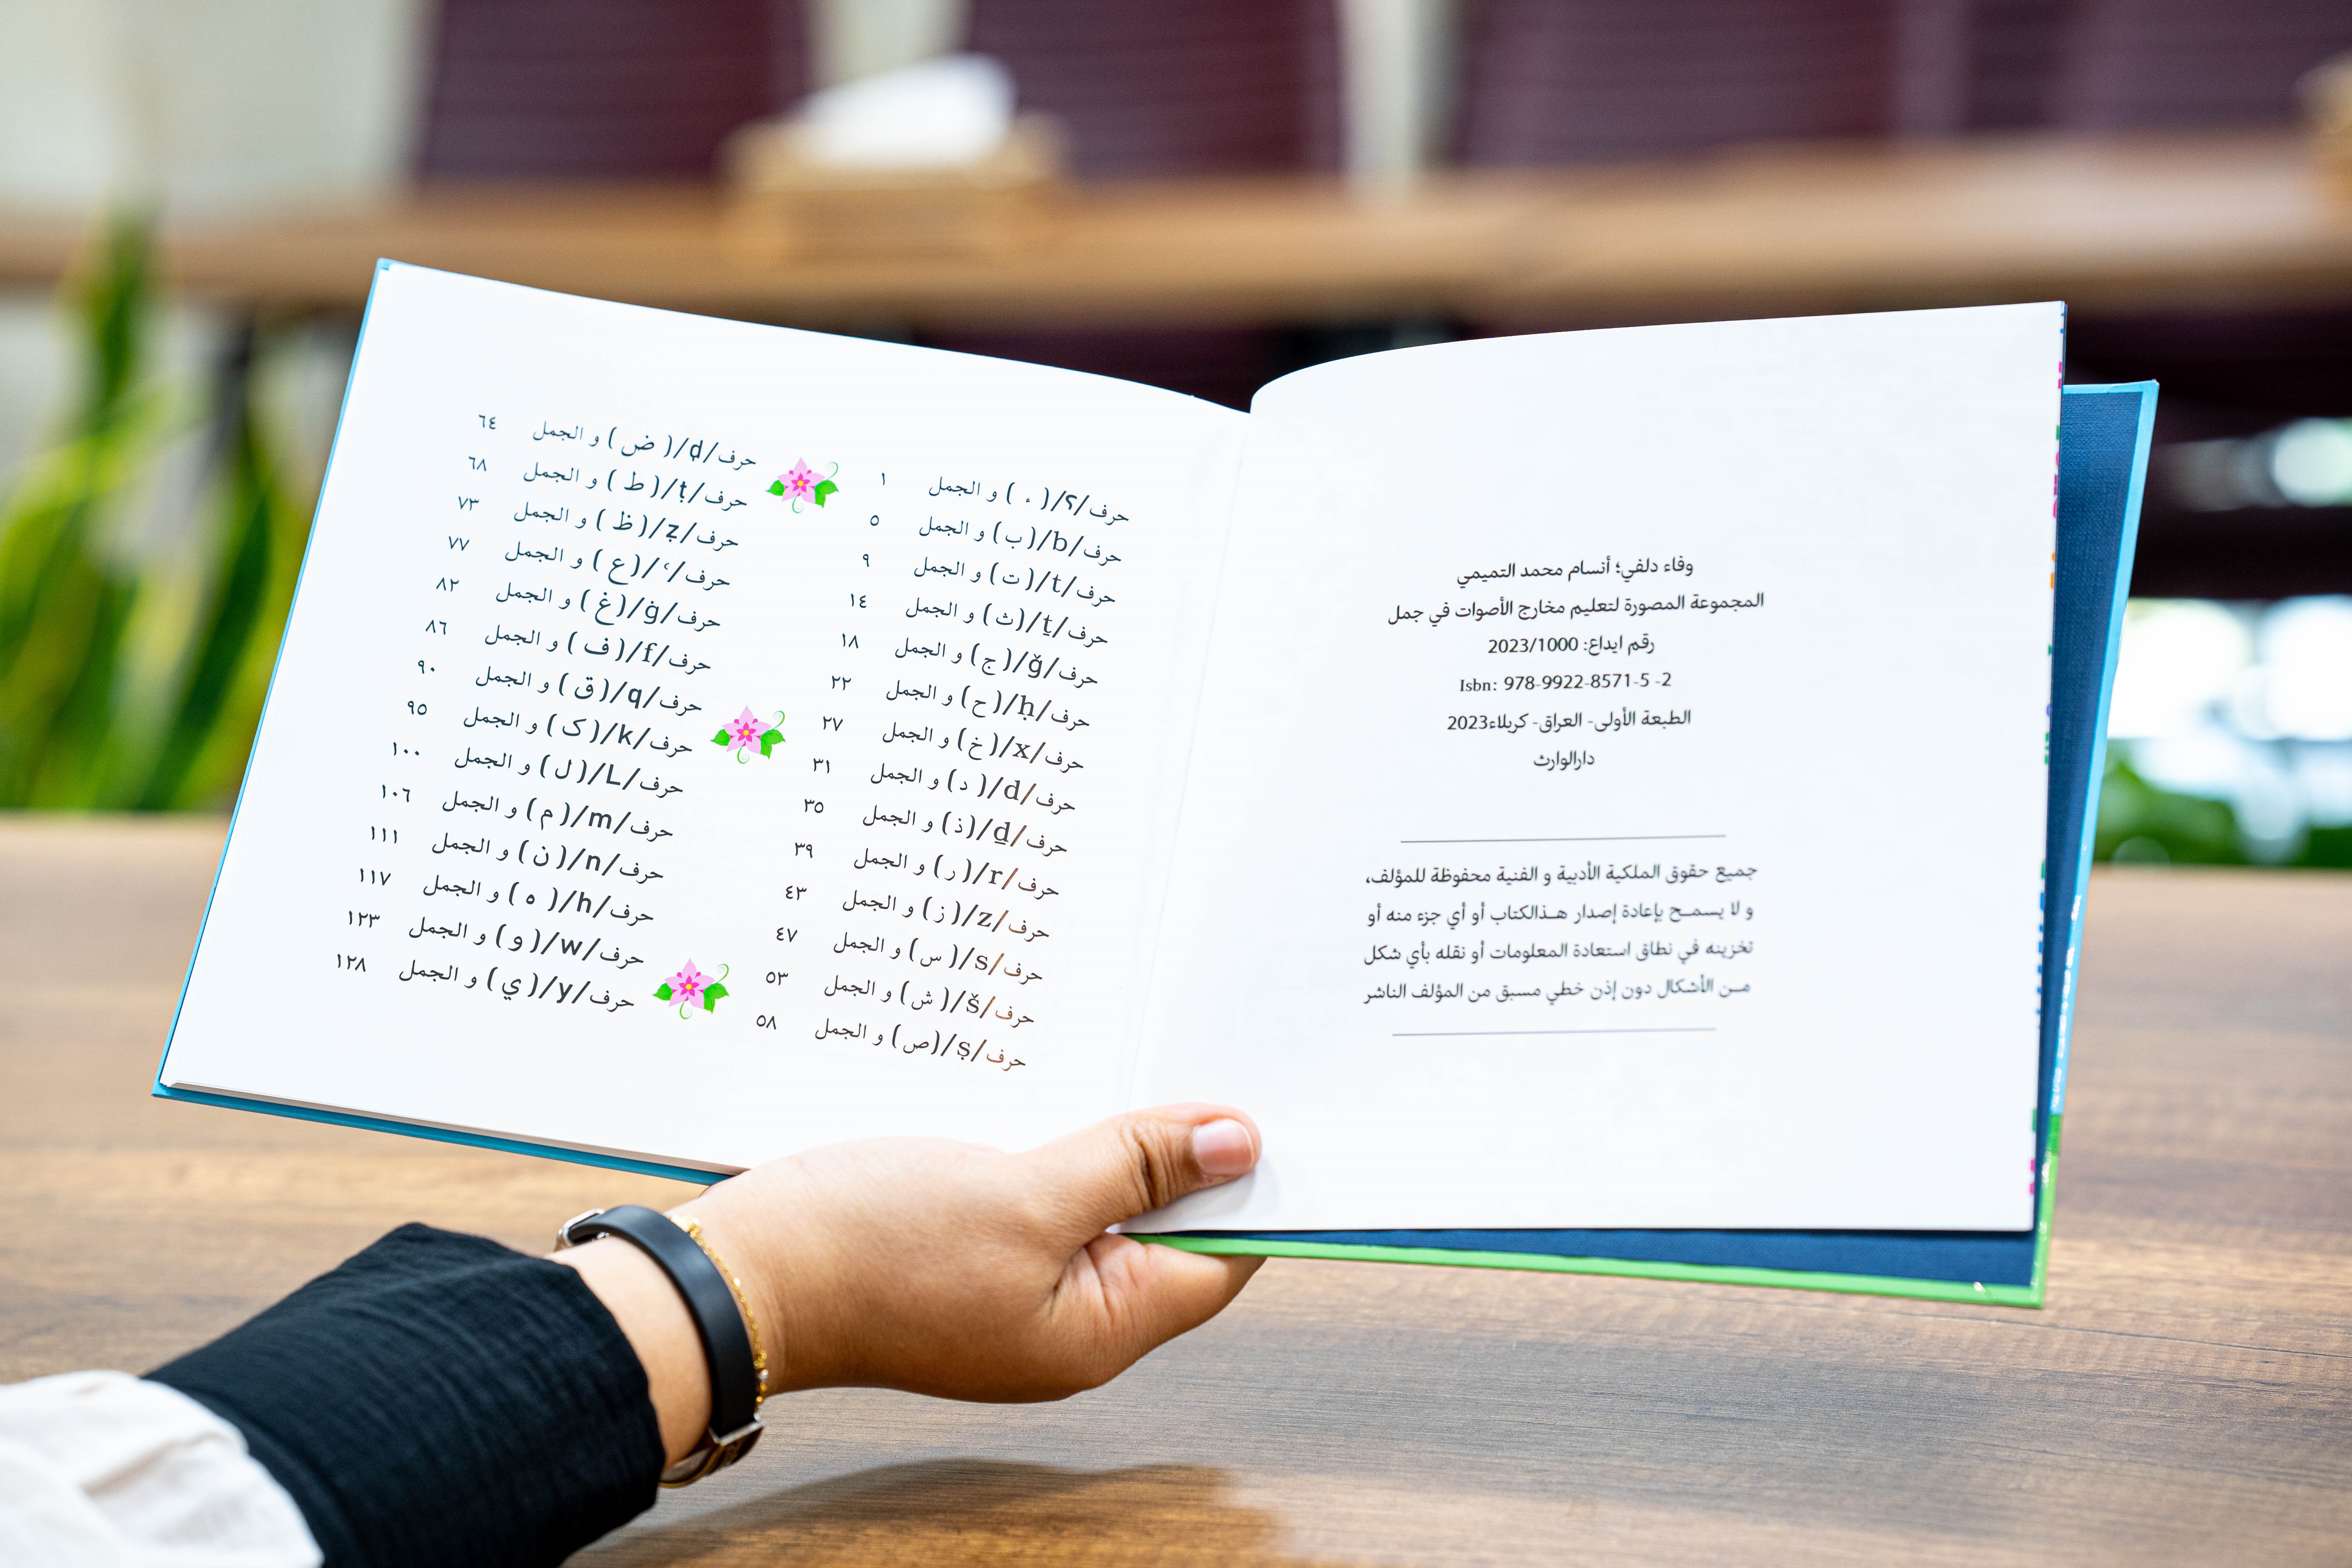 وفاء دلفي؛ أنسام محمد التميمي
المجموعة المصورة لتعليم مخارج الأصوات في جمل
رقم ايداع: 2023/1000
Isbn: 978-9922-8571-5 -2
الطبعة الأولى- العراق- كربلاء2023
دارالوارث
جميع حقوق الملكية الأدبية و الفنية محفوظة للمؤلف،
و لا يسمــح بإعادة إصدار هـذالكتاب أو أي جزء منه أو
تخزينه في نطاق استعادة المعلومات أو نقله بأي شكل
مــن الأشكال دون إذن خطي مسبق من المؤلف الناشر
حرف/؟/( ء ) و الجمل ١
حرف/b/(ب) و الجمل ٥
حرف/t/(ت) و الجمل ٩
حرف/ṯ/(ث) و الجمل ١٤
حرف/ǧ/(ج) و الجمل ١٨
حرف/ḥ/(ح) و الجمل ٢٢
حرف/x/(خ) و الجمل ٢٧
حرف/d/( د) و الجمل ٣١
حرف/ḏ/(ذ) و الجمل ٣٥
حرف/r/( ر) و الجمل ٣٩
حرف/z/( ز) و الجمل ٤٣
حرف/s/( س) و الجمل ٤٧
حرف/š/( ش) و الجمل ٥٣
حرف/ṣ/(ص) و الجمل ٥٨
حرف/ḍ/( ض ) و الجمل ٦٤
حرف/ṭ/( ط ) و الجمل ٦٨
حرف/ẓ/( ظ ) و الجمل ٧٣
حرف/‘/( ع ) و الجمل ٧٧
حرف/ġ/(غ ) و الجمل ٨٢
حرف/f/( ف ) و الجمل ٨٦
حرف/q/( ق ) و الجمل ٩٠
حرف/k/( ک ) و الجمل ٩٥
حرف/L/( ل ) و الجمل ١٠٠
حرف/m/( م ) و الجمل ١٠٦
حرف/n/( ن ) و الجمل ١١١
حرف/h/( ه ) و الجمل ١١٧
حرف/w/( و ) و الجمل ١٢٣
حرف/y/( ي ) و الجمل ١٢٨